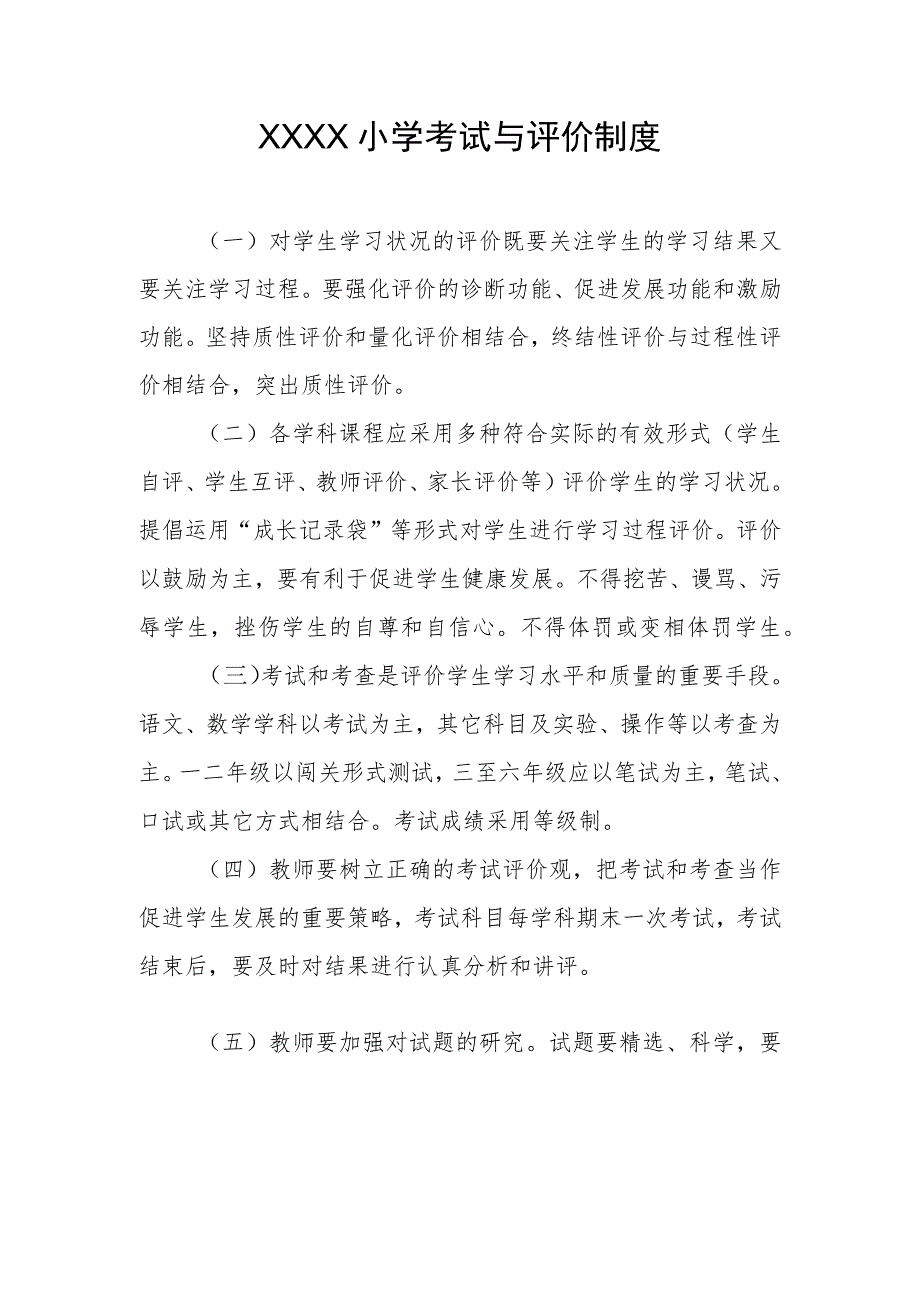 XXXX 小学考试与评价制度
（一）对学生学习状况的评价既要关注学生的学习结果又
要关注学习过程。要强化评价的诊断功能、促进发展功能和激励
功能。坚持质性评价和量化评价相结合，终结性评价与过程性评
价相结合，突出质性评价。
（二）各学科课程应采用多种符合实际的有效形式（学生
自评、学生互评、教师评价、家长评价等）评价学生的学习状况。
提倡运用“成长记录袋”等形式对学生进行学习过程评价。评价
以鼓励为主，要有利于促进学生健康发展。不得挖苦、谩骂、污
辱学生，挫伤学生的自尊和自信心。不得体罚或变相体罚学生。
（三）考试和考查是评价学生学习水平和质量的重要手段。
语文、数学学科以考试为主，其它科目及实验、操作等以考查为
主。一二年级以闯关形式测试，三至六年级应以笔试为主，笔试、
口试或其它方式相结合。考试成绩采用等级制。
（四）教师要树立正确的考试评价观，把考试和考查当作
促进学生发展的重要策略，考试科目每学科期末一次考试，考试
结束后，要及时对结果进行认真分析和讲评。
（五）教师要加强对试题的研究。试题要精选、科学，要